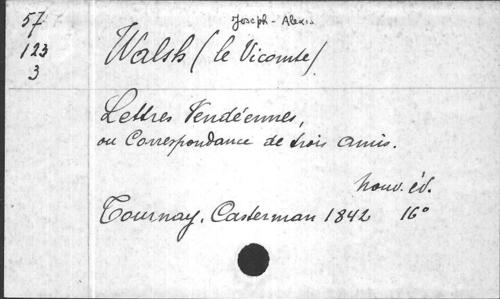 57
123
3
Joseph-Alexis
Walsh (le Vicomte)
Lettres Vendéennes,
ou Correspondance de trois amis.
Nouv. éd.
Tournay, Casterman 1842 16°